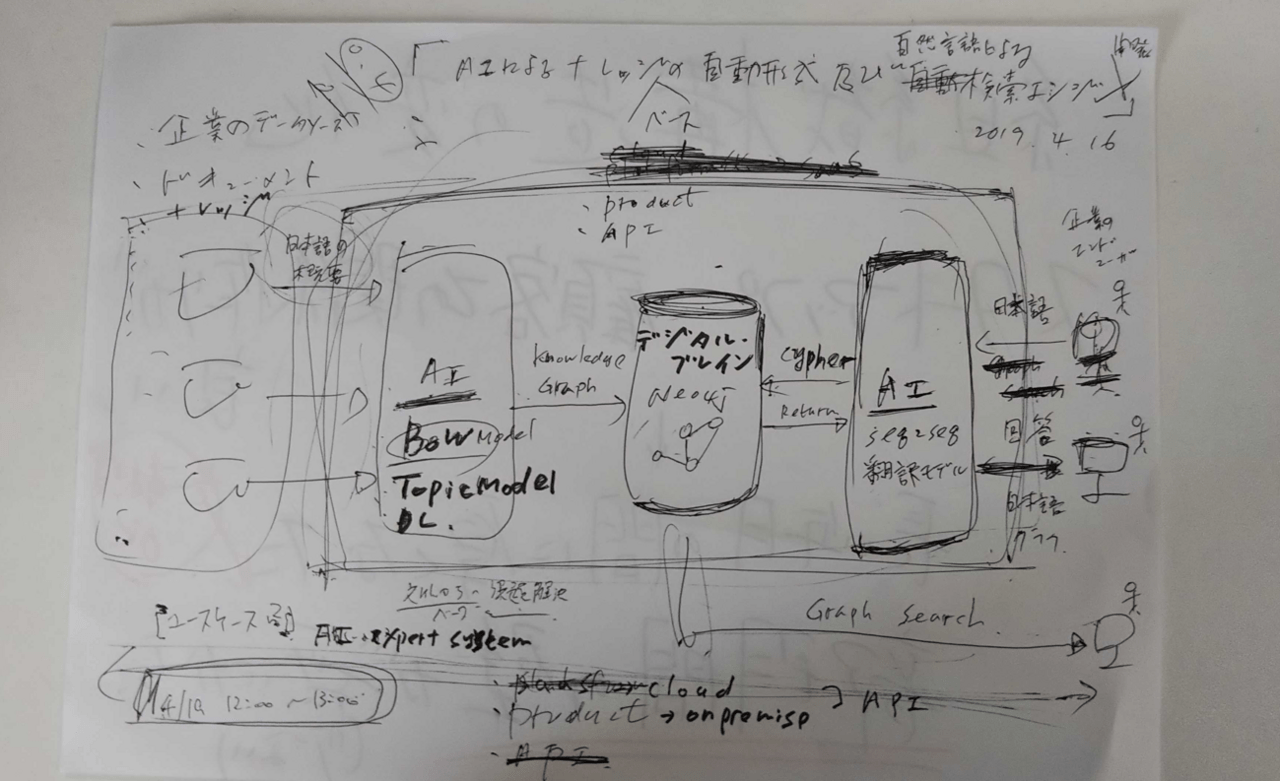 「AIによるナレッジの自動形式 及び 自然言語による
自動検索エンジン」
ベース
2019. 4. 16
・企業のデータソース
・ドキュメント
ナレッジ
・product
・API
日本語の
企業の
エンドユーザ
AI
BoW Model
Topic Model
DL.
Knowledge
Graph
デジタル・
ブレイン
Neo4j
Cypher
Return
AI
seq2seq
翻訳モデル
日本語
回答
日本語
グラフ
[ユースケース図]
AI・expert system
ベース
課題解決
Graph search
12:00 ~ 13:00
・cloud
・product → onpremise
API
・API